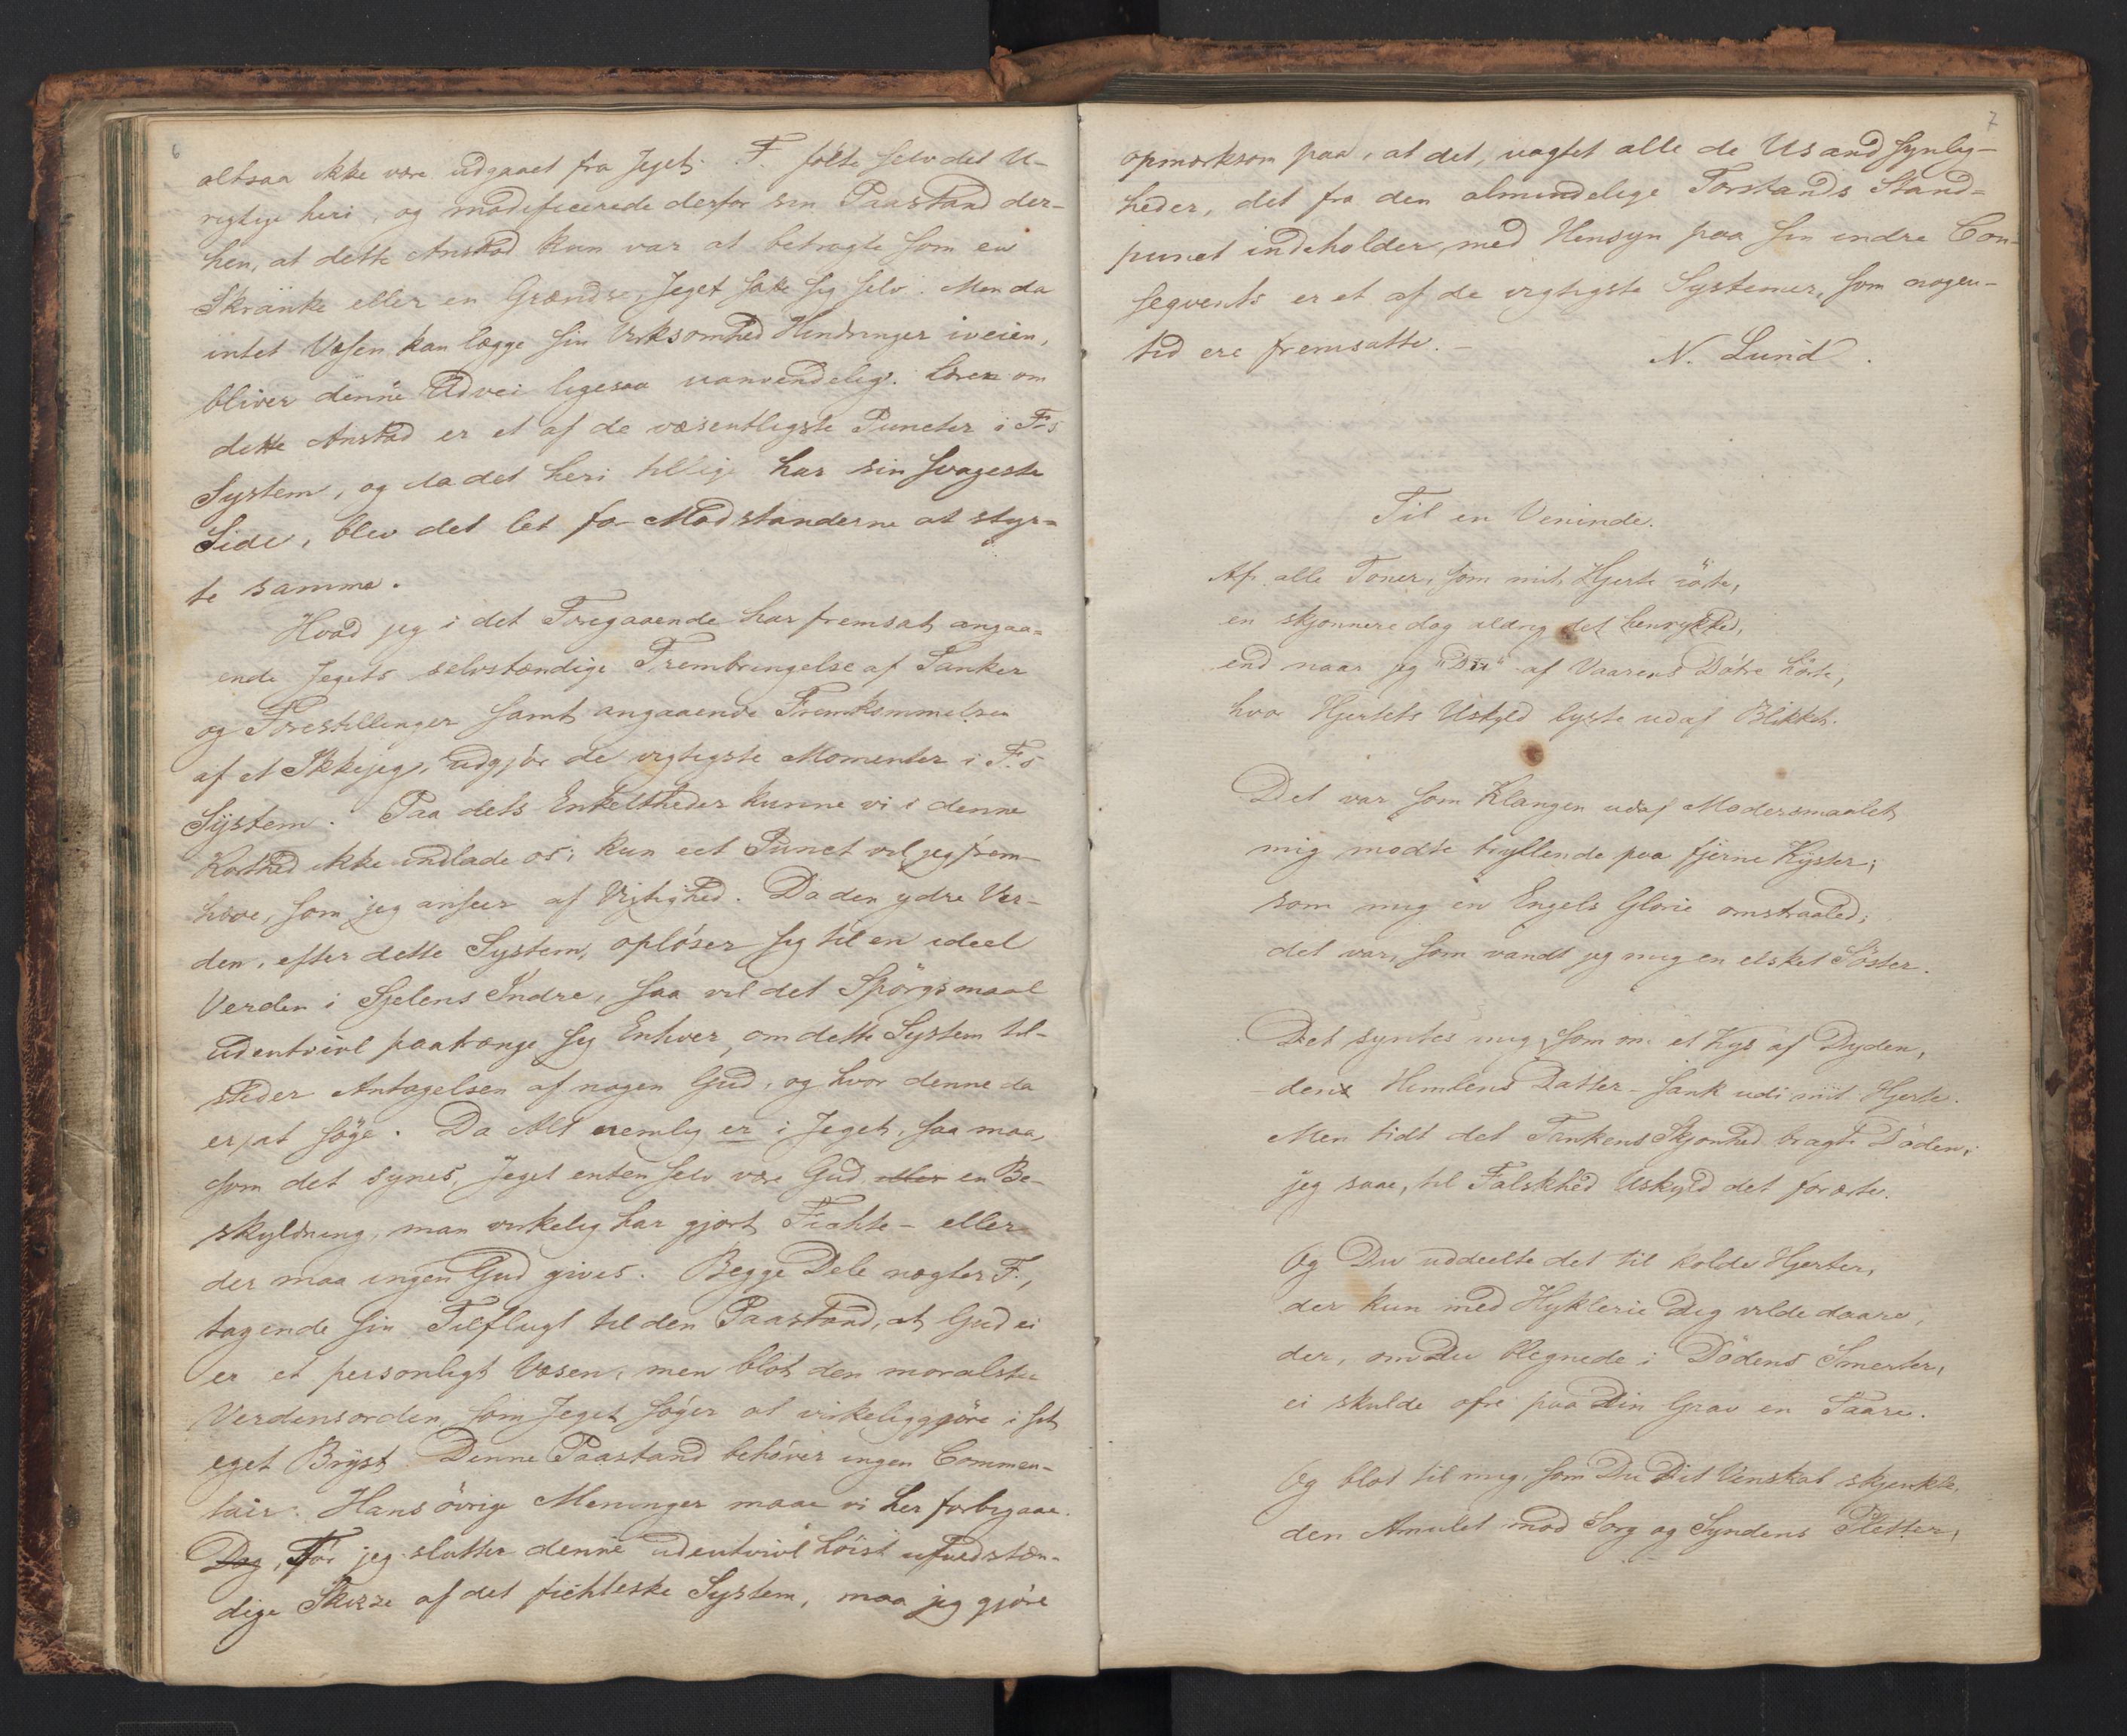 6
altsaa ikke være udgaaet fra Jeget. F. følte selv det U-
rigtige heri, og modificerede derfor sin Paastand der-
hen, at dette Anstød kun var at betragte som en
Skranke eller en Grændse, Jeget satte sig selv. Men da
intet Væsen kan lægge sin Virksomhed Hindringer iveien,
bliver denne Udvei ligesaa uanvendelig. Læren om
dette Anstød er et af de væsentligste Puncter i F.s
System, og da det heri tillige har sin svageste
Side, blev det let for Modstanderne at styr-
te samme.
Hvad jeg i det Foregaaende har fremsat angaa-
ende Jegets selvstændige Frembringelse af Tanker
og Forestillinger samt angaaende Fremkommelsen
af et Ikkejeg, udgjör de vigtigste Momenter i F.s
System. Paa dets Enkeltheder kunne vi i denne
Korthed ikke indlade os; kun eet Punct vil jeg frem-
hæve, som jeg anseer af Vigtighed. Da den ydre Ver-
den, efter dette System, opløser sig til en ideel
Verden i Sjelens Indre, saa vil det Spörgsmaal
udentvivl paatrænge sig Enhver, om dette System til-
steder Antagelsen af nogen Gud, og hvor denne da
er at søge. Da Alt nemlig er i Jeget, saa maa,
som det synes, Jeget enten selv være Gud eller en Be-
skyldning, man virkelig har gjort Fichte - eller
der maa ingen Gud gives. Begge Dele nægter F.,
tagende sin Tilflugt til den Paastand, at Gud ei
er et personligt Væsen, men blot den moralske
Verdensorden, som Jeget søger at virkeliggjöre i sit
eget Bryst. Denne Paastand behøver ingen Commen-
tair. Hans övrige Meninger maae vi her forbigaae.
Dog, För jeg slutter denne udentvivl höist ufuldstæn-
dige Skizze af det fichteske System, maa jeg gjöre
7
opmærksom paa, at det, uagtet alle de Usandsynlig-
heder, det fra den almindelige Forstands Stand-
punct indeholder, med Hensyn paa sin indre Con-
seqvents er et af de vigtigste Systemer, som nogen-
tid ere fremsatte. -
N. Lund.
Til en Veninde.
Af alle Toner, som mit Hjerte rörte,
en skjønnere dog aldrig det henrykked,
end naar jeg "Du" af Vaarens Døtre hörte,
hvor Hjertets Uskyld lyste ud af Blikket.
Det var som Klangen udaf Modersmaalet
mig mødte tryllende paa fjerne Kyster;
som mig en Engels Glorie omstraaled;
det var, som vandt jeg mig en elsket Söster.
Det syntes mig, som om et Kys af Dyden,
den Himlens Datter - sank udi mit Hjerte.
Men tidt det Tankens Skjønhed bragte Döden;
jeg saae, til Falskhed Uskyld det forærte.
Og Du uddeelte det til kolde Hjerter,
der kun med Hyklerie Dig vilde daare,
der, om Du blegnede i Dödens Smerter,
ei skulde ofre paa Din Grav en Taare.
Og blot til mig, som Du Dit Venskab skjenkte,
den Amulet mod Sorg og Syndens Pletter,